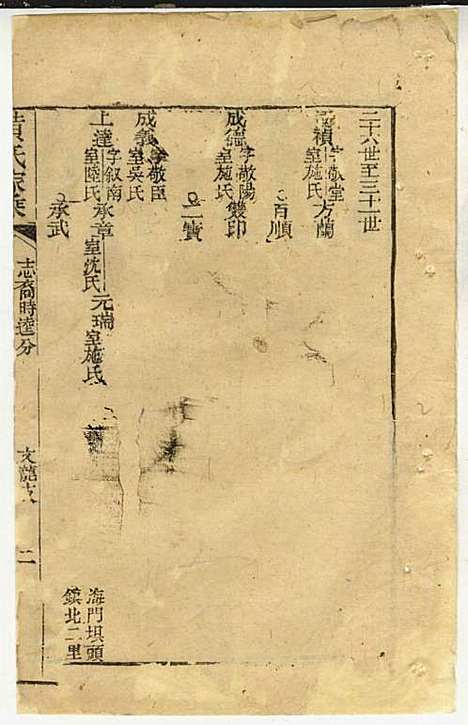 二十六世至三十一世
禎字敬堂室施氏 方蘭
百順
成德字敬陽室施氏 雙印
二寶
成義字敬臣室吳氏
上達字叙南室陸氏 承章室沈氏 元瑞室施氏
承武
海門垻頭
鎮北二里
黄氏家乘
志裔時達分
文龍支
二